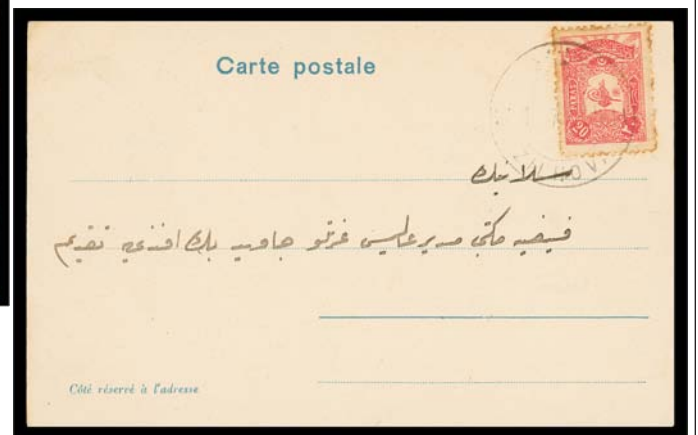 Carte postale
20
سلانیك
فیضیه مكتبی مدیر عالیسی عزتلو جاوید بك افندی یه تقدیم
Côté réservé à l'adresse